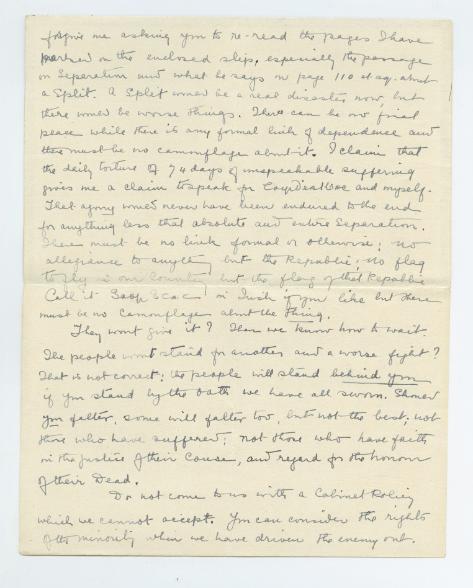 forgive me asking you to re-read the pages I have
marked on the enclosed slip, especially the passage
on Separation and what he says on page 110 et sq. about
a Split. A Split would be a real disaster now, but
there would be worse things. There can be no final
peace while there is any formal link of dependence and
there must be no camouflage about it. I claim that
the daily torture of 74 days of unspeakable suffering
gives me a claim to speak for and myself.
That agony would never have been endured to the end
for anything less that absolute and entire Separation.
There must be no link formal or otherwise; no
allegiance to anything but the Republic; no flag
to fly in our Country but the flag of that Republic
Call it in Irish if you like but there
must be no camouflage about the thing.
They wont give it? Then we know how to wait.
The people wont stand for another and a worse fight?
That is not correct; the people will stand behind you
if you stand by the oath we have all sworn. Should
you falter, some will falter too, but not the best; not
those who have suffered; not those who have faith
in the justice of their Cause, and regard for the honour
of their Dead.
Do not come to us with a Cabinet Policy
which we cannot accept. You can consider the rights
of the minority when we have driven the enemy out.